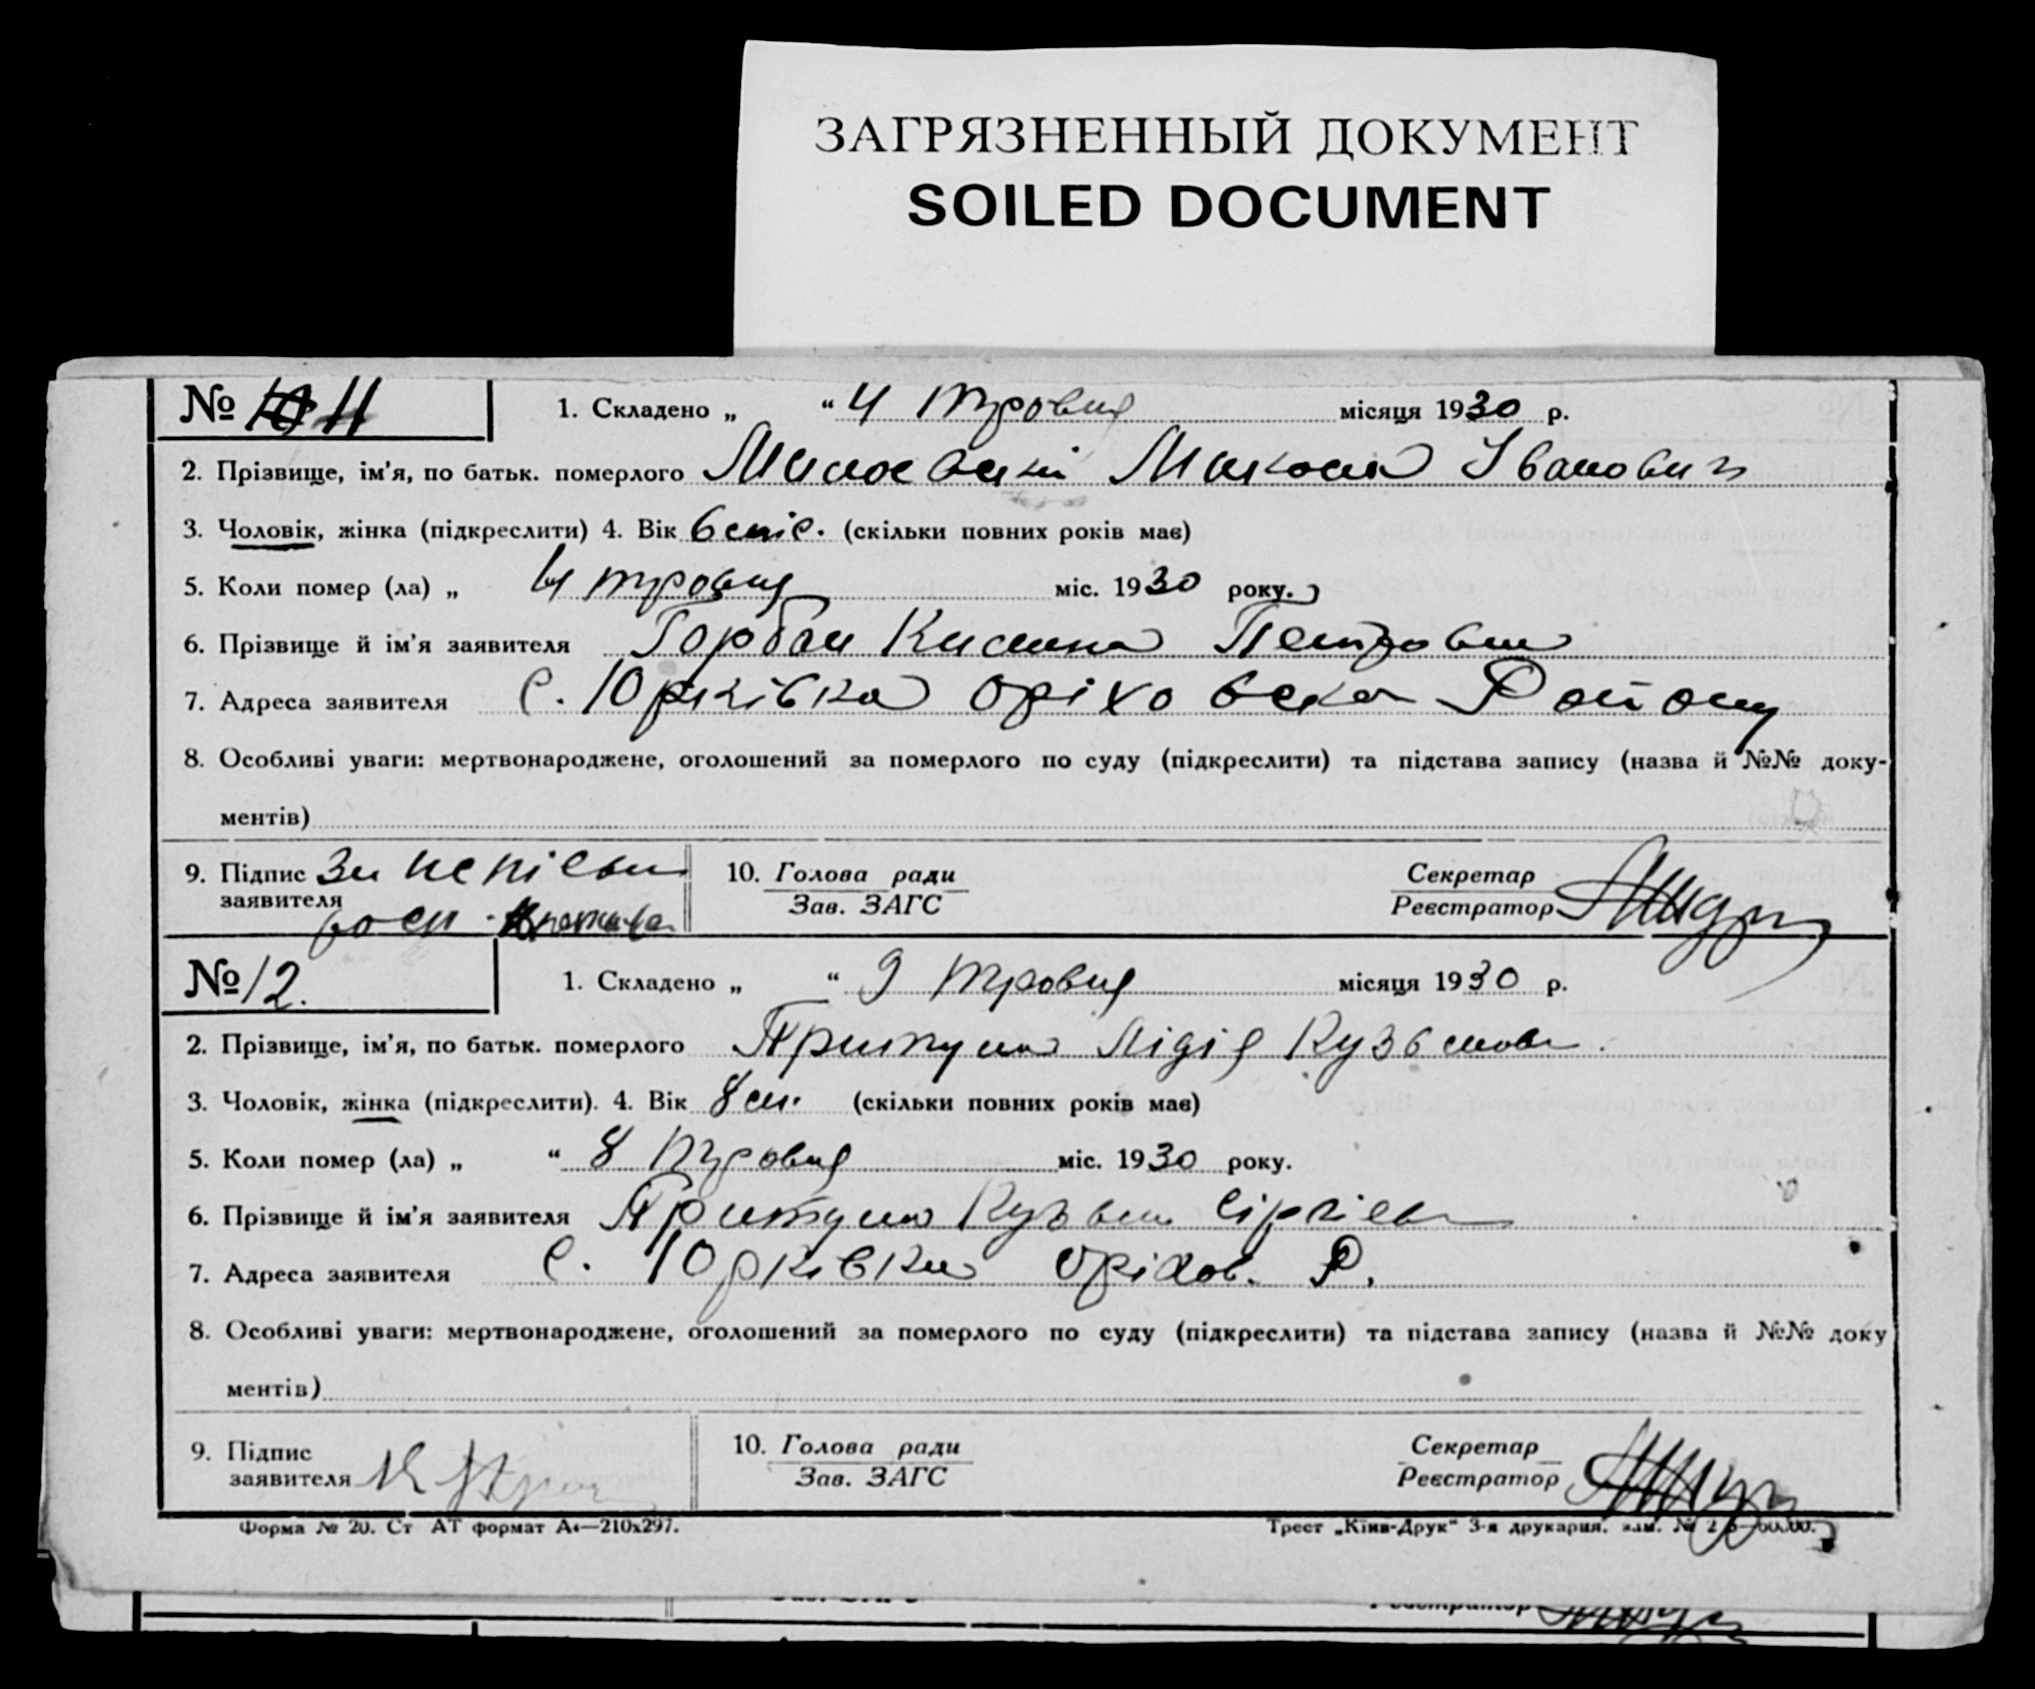 ЗАГРЯЗНЕННЫЙ ДОКУМЕНТ
SOILED DOCUMENT
№ 11 1. Складено „ “ 4 тровня місяця 1930 р.
2. Прізвище, ім'я, по батьк. померлого Микола Іванович
3. Чоловік, жінка (підкреслити) 4. Вік 6 міс. (скільки повних років має)
5. Коли помер (ла) „ 4 тровня міс. 1930 року.
6. Прізвище й ім'я заявителя Горбан Петровна
7. Адреса заявителя с. Юрківка Оріховська Району
8. Особливі уваги: мертвонароджене, оголошений за померлого по суду (підкреслити) та підстава запису (назва й №№ доку-
ментів)
9. Підпис За непісьм 10. Голова ради Секретар
заявителя Зав. ЗАГС Реєстратор
№ 12. 1. Складено „ “ 9 тровня місяця 1930 р.
2. Прізвище, ім'я, по батьк. померлого Притула Лідія Кузьмовн.
3. Чоловік, жінка (підкреслити). 4. Вік 8 м. (скільки повних років має)
5. Коли помер (ла) „ “ 8 тровня міс. 1930 року.
6. Прізвище й ім'я заявителя Притула Кузьма Сіргієв
7. Адреса заявителя с. Юрківка Оріхов. Р.
8. Особливі уваги: мертвонароджене, оголошений за померлого по суду (підкреслити) та підстава запису (назва й №№ доку
ментів)
9. Підпис 10. Голова ради Секретар
заявителя Зав. ЗАГС Реєстратор
Форма № 20. Ст АТ формат А4—210х297. Трест „Київ-Друк“ 3-я друкарня. зам. №